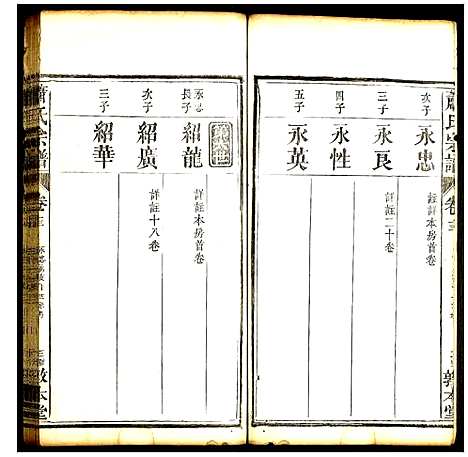 蕭氏宗譜
卷十三
敦本堂
次子
永忠
註詳本房首卷
三子
永良
詳註二十卷
四子
永性
五子
永英
永忠長子
紹龍
詳註本房首卷
次子
紹廣
詳註十八卷
三子
紹華
蕭氏宗譜
卷十三
敦本堂